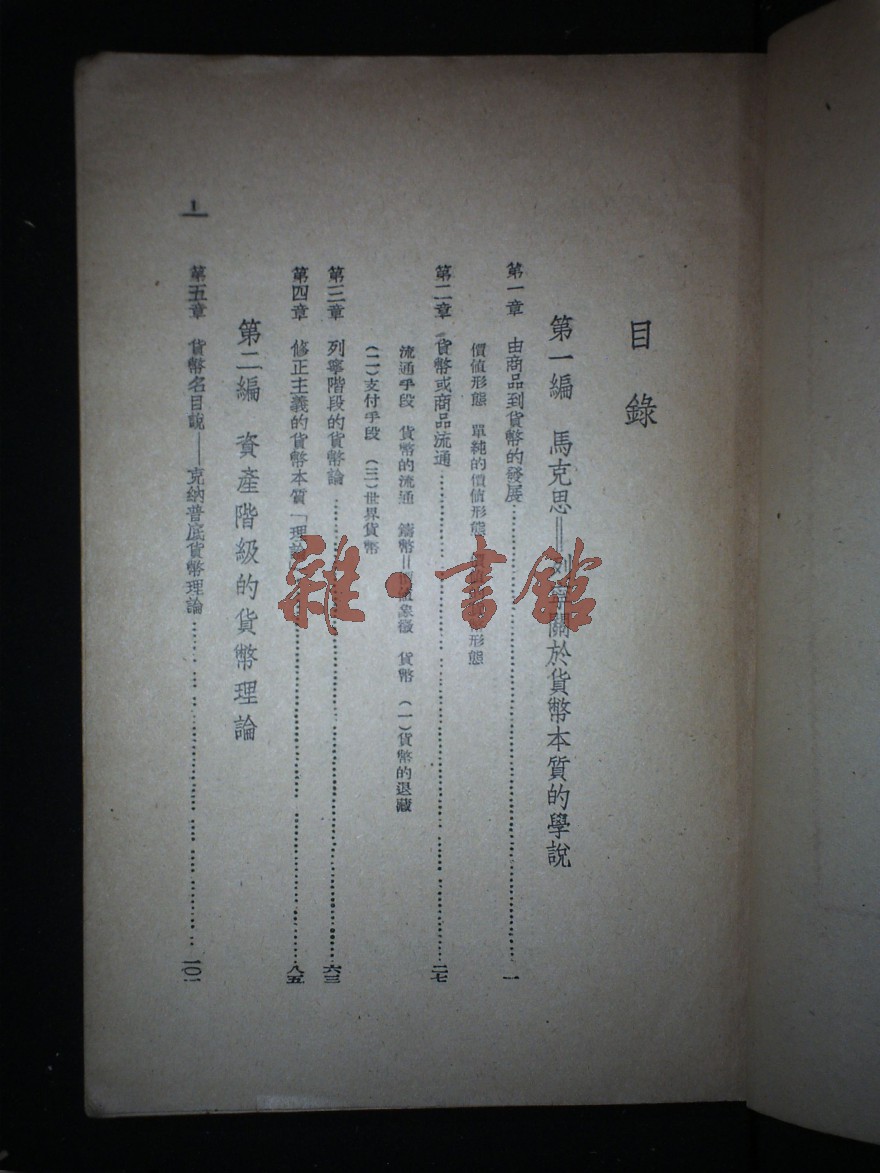 目錄
第一編 馬克思＝列寧關於貨幣本質的學說
第一章 由商品到貨幣的發展……一
價値形態 單純的價値形態 形態
第二章 貨幣或商品流通……二七
流通手段 貨幣的流通 鑄幣＝價值象徵 貨幣 （一）貨幣的退藏
（二）支付手段 （三）世界貨幣
第三章 列寧階段的貨幣論……六三
第四章 修正主義的貨幣本質「理論」……八五
第二編 資產階級的貨幣理論
第五章 貨幣名目說——克納普底貨幣理論……一〇一
1
雜·書館